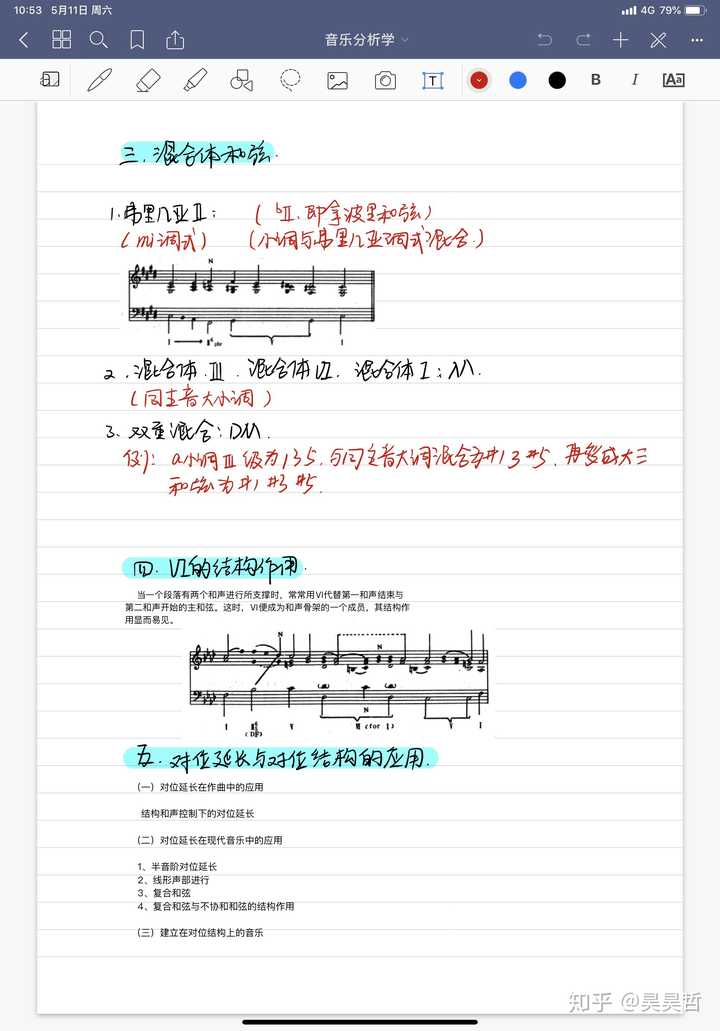 10:53 5月11日 周六 4G 79%
音乐分析学
T B I Aa
三.混合体和弦.
1.弗里几亚Ⅱ: (♭Ⅱ.即拿波里和弦)
(mi调式) (小调与弗里几亚调式混合.)
N
I V I
2.混合体Ⅲ.混合体Ⅵ.混合体I:M.
(同主音大小调)
3.双重混合:DM.
例: a小调Ⅲ级为135.与同主音大调混合为#13#5.再变成大三
和弦为#1#3#5.
四.Ⅵ的结构作用.
当一个段落有两个和声进行所支撑时,常常用VI代替第一和声结束与
第二和声开始的主和弦。这时,VI便成为和声骨架的一个成员,其结构作
用显而易见。
N N
N
I V Ⅵ (for I) V I
(DF)
五.对位延长与对位结构的应用.
(一)对位延长在作曲中的应用
结构和声控制下的对位延长
(二)对位延长在现代音乐中的应用
1、半音阶对位延长
2、线形声部进行
3、复合和弦
4、复合和弦与不协和和弦的结构作用
(三)建立在对位结构上的音乐
知乎 @昊昊哲